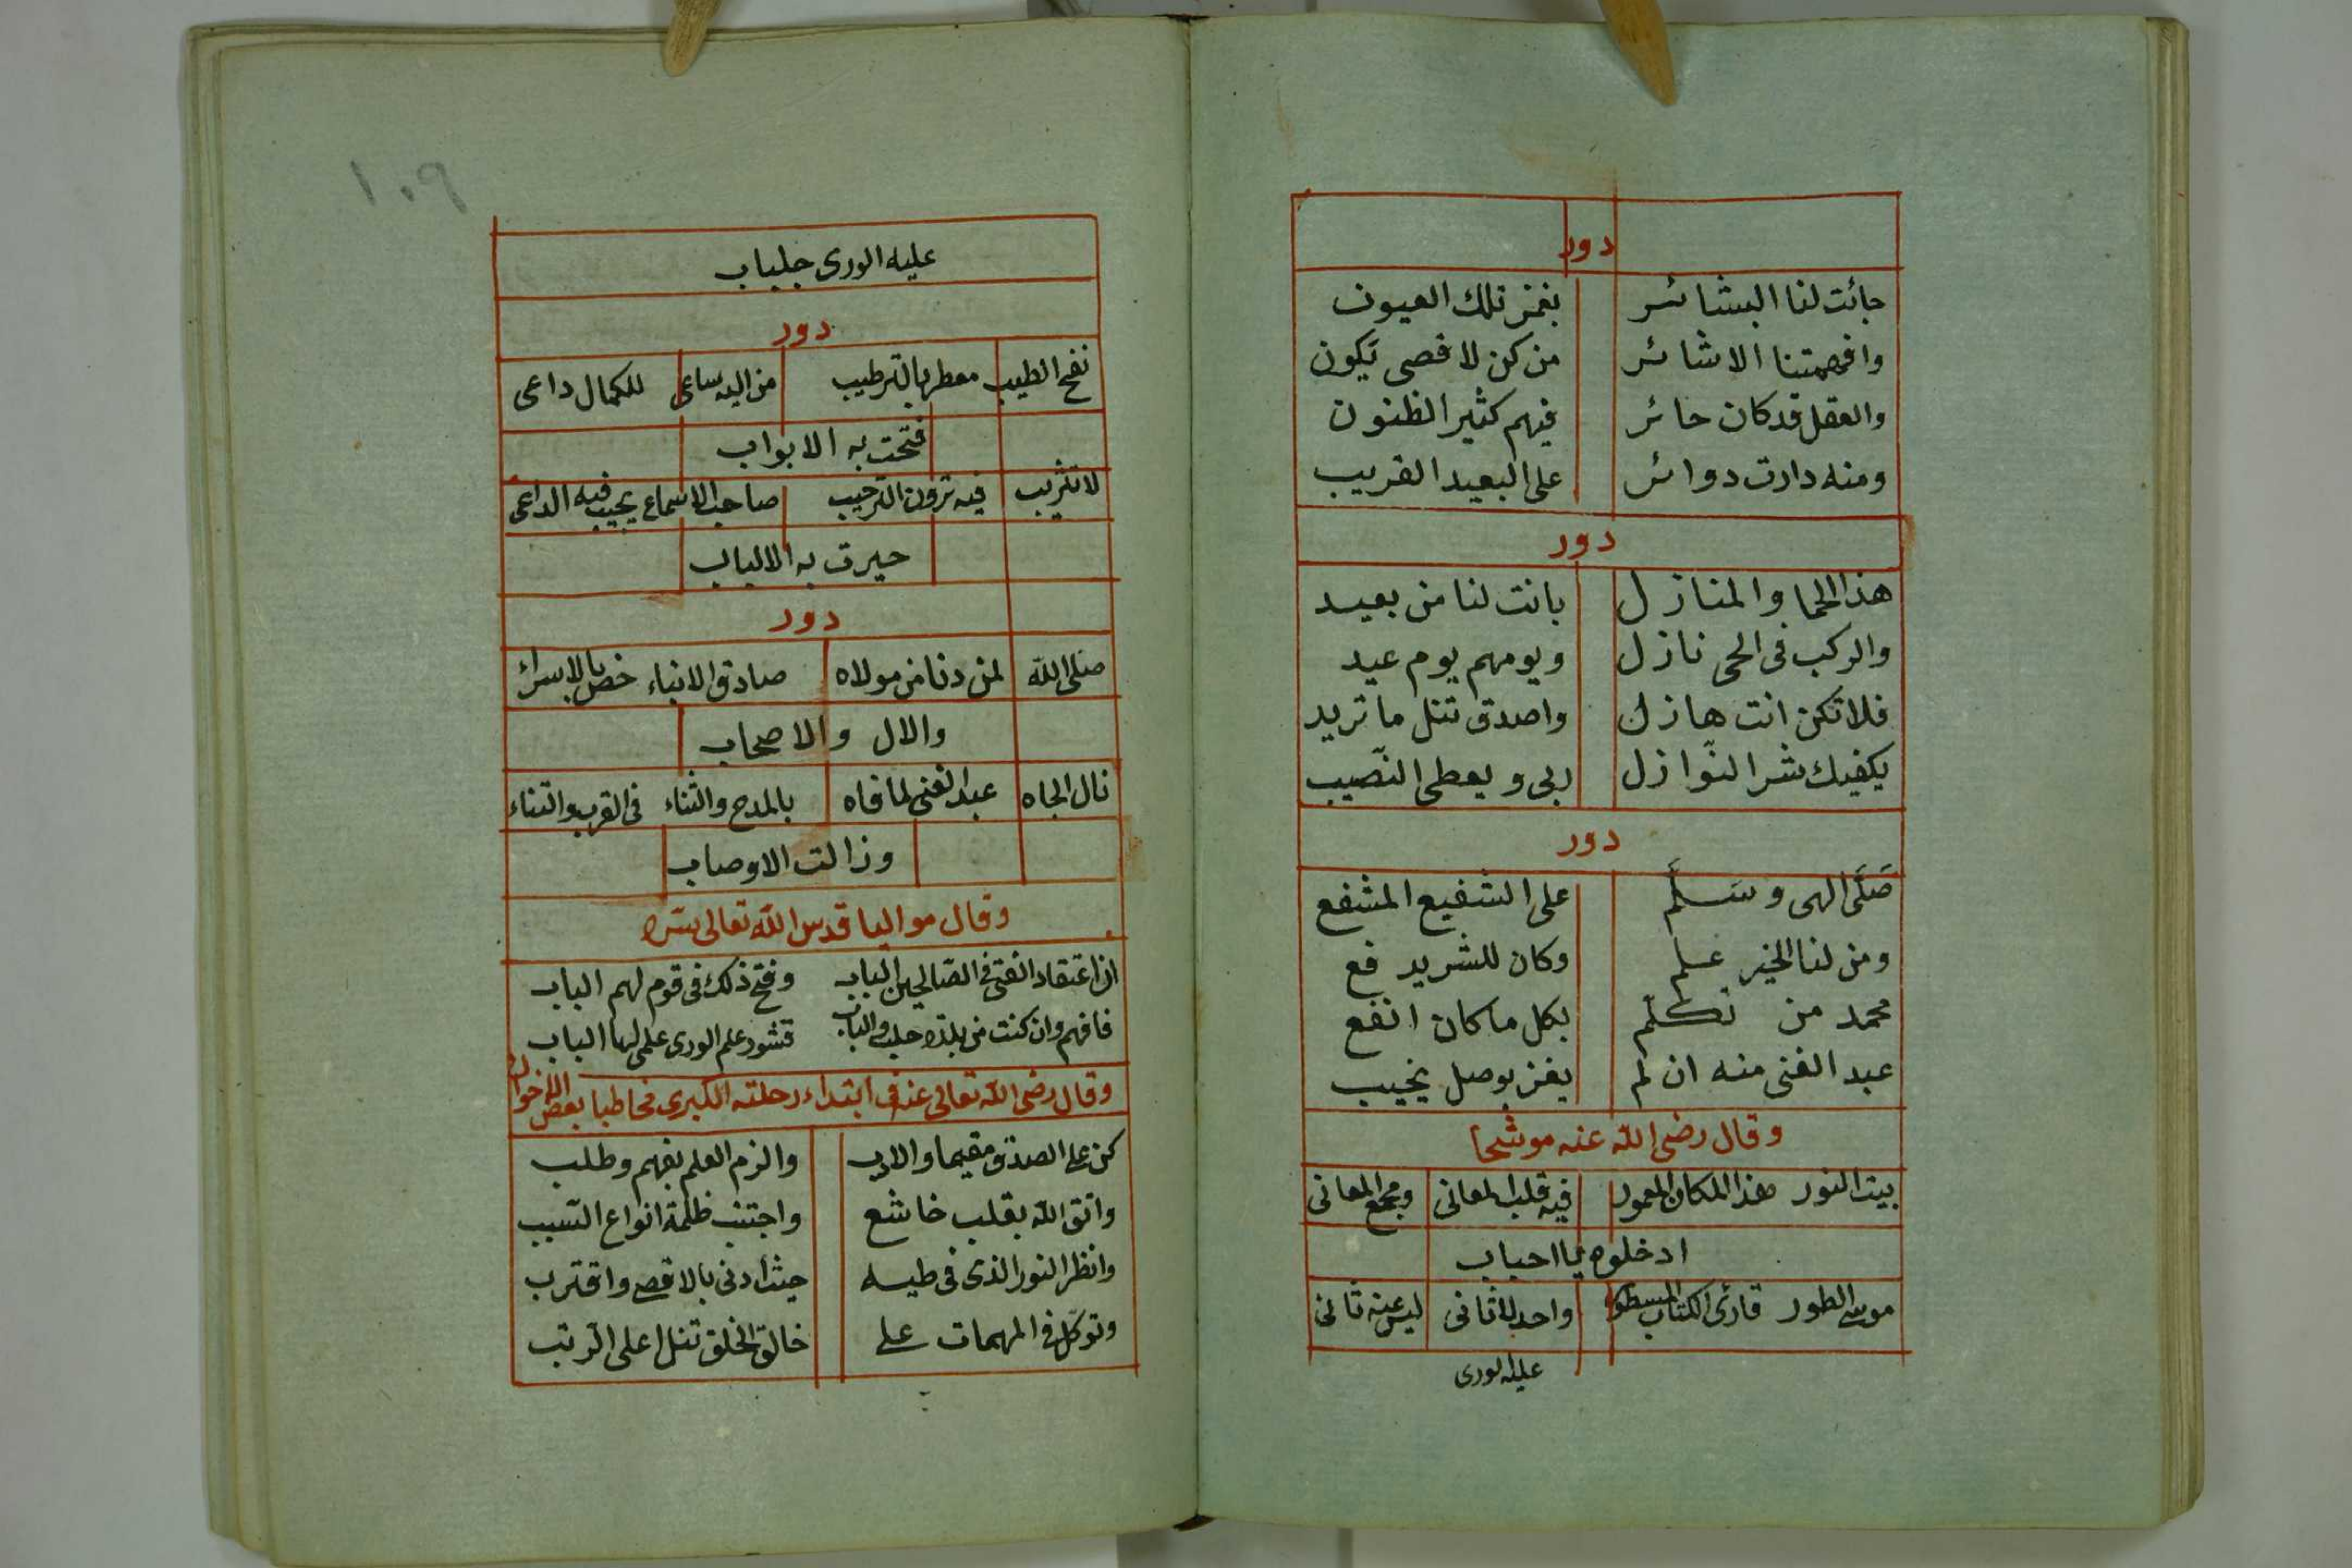 دور
جائت لنا البشائر بغمز تلك العيون
وافهمتنا الاشائر من كن لاقصى يكون
والعقل قد كان حائر فيهم كثير الظنون
ومنه دارت دوائر على البعيد القريب
دور
هذا الحما والمنازل بانت لنا من بعيد
والركب فى الحى نازل ويومهم يوم عيد
فلا تكن انت هازل واصدق تنل ما تريد
يكفيك شر النّوازل ربى ويعطى النّصيب
دور
صَلَّى الهى وسَلَّم على الشفيع المشفع
ومن لنا الخير علم وكان للشريد فع
محمد من تكلّم بكل ما كان انفع
عبد الغنى منه ان لم يفز بوصل يخيب
وقال رضى الله عنه موشحا
بيت النور هذا المكان المعمور فيه قلب المعانى ومجمع المعانى
ادخلوه يا احباب
موسى الطور قارئ الكتاب المسطور واحد لا ثانى ليس عنه ثانى
عليه الورى
١٠٩
عليه الورى جلباب
دور
نفح الطيب معطر بالترطيب من اليه ساعى للكمال داعى
فتحت به الابواب
لا تثريب فيه ترون الترحيب صاحب الاسماع يجيب فيه الداعى
حيرت به الالباب
دور
صلى الله لمن دنا من مولاه صادق الانباء خص بالاسراء
والال والاصحاب
نال الجاه عبد الغنى لما فاه بالمدح والثناء فى القرب والتناء
وزالت الاوصاب
وقال مواليا قدس الله تعالى سره
ان اعتقاد الفتى فى الصّالحين الباب وفتح ذلك فى قوم لهم الباب
فافهم وان كنت من بلدة حلب والباب قشور علم الورى علمى لها الباب
وقال رضى الله تعالى عنه فى ابتداء رحلته الكبرى مخاطبا بعض الاخوان
كن على الصدق مقيما والادب والزم العلم بفهم وطلب
واتق الله بقلب خاشع واجتنب ظلمة انواع السّبب
وانظر النور الذى فى طيه حيث ادنى بالاقصى واقترب
وتوكّل فى المهمات على خالق الخلق تنل اعلى الرّتب